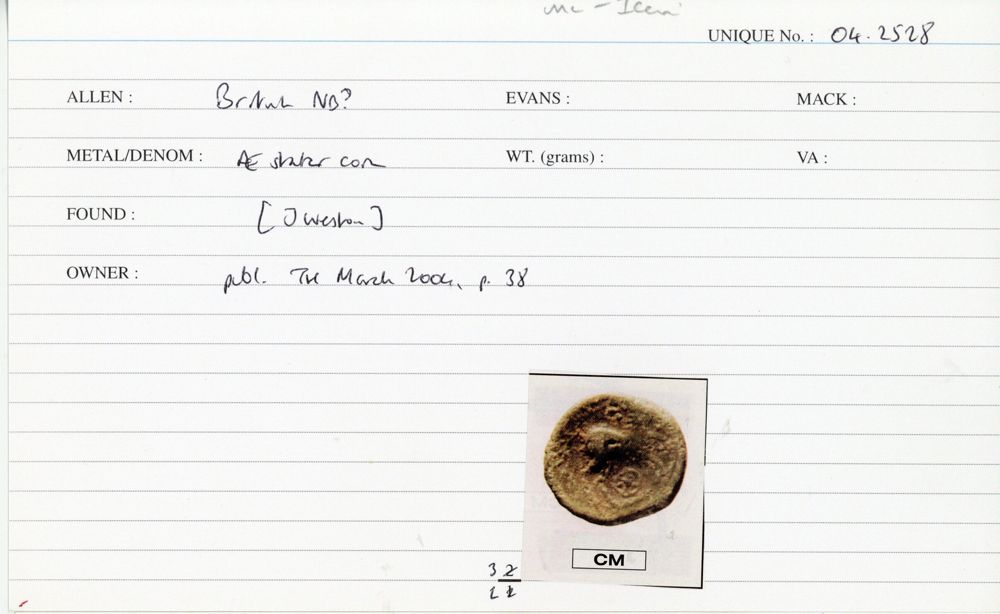 Iceni
UNIQUE No. : 04.2528
ALLEN : British NB? EVANS : MACK :
METAL/DENOM : Æ stater core WT. (grams) : VA :
FOUND : [J Weston]
OWNER : publ. TH March 2004, p. 38
CM
3 2
2 1